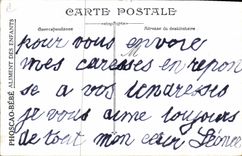 CARTE POSTALE
Correspondance
Adresse du destinataire
PHOSCAO-BÉBÉ ALIMENT DES ENFANTS
pour vous envoie
mes caresses en repon
se a vos tendresses
je vous aime toujours
de tout mon cœur Léonce